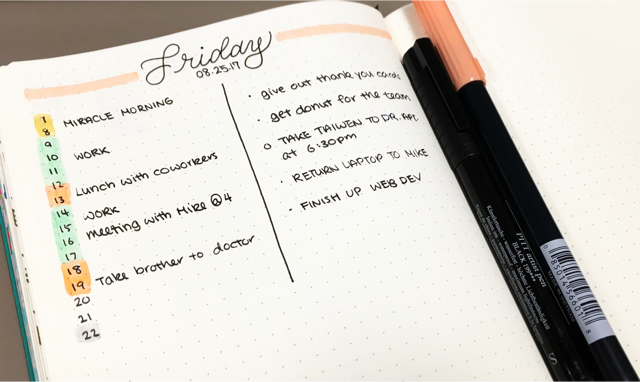 Friday
08.25.17
7 MIRACLE MORNING
8
9
10 WORK
11
12
13 Lunch with coworkers
14 WORK
15 meeting with Mike @4
16
17
18
19 Take brother to doctor
20
21
22
· give out thank you cards
· get donut for the team
o TAKE TAIWEN TO DR. APT.
at 6:30pm
· RETURN LAPTOP TO MIKE
· FINISH UP WEB DEV
PITT artist pen
BLACK